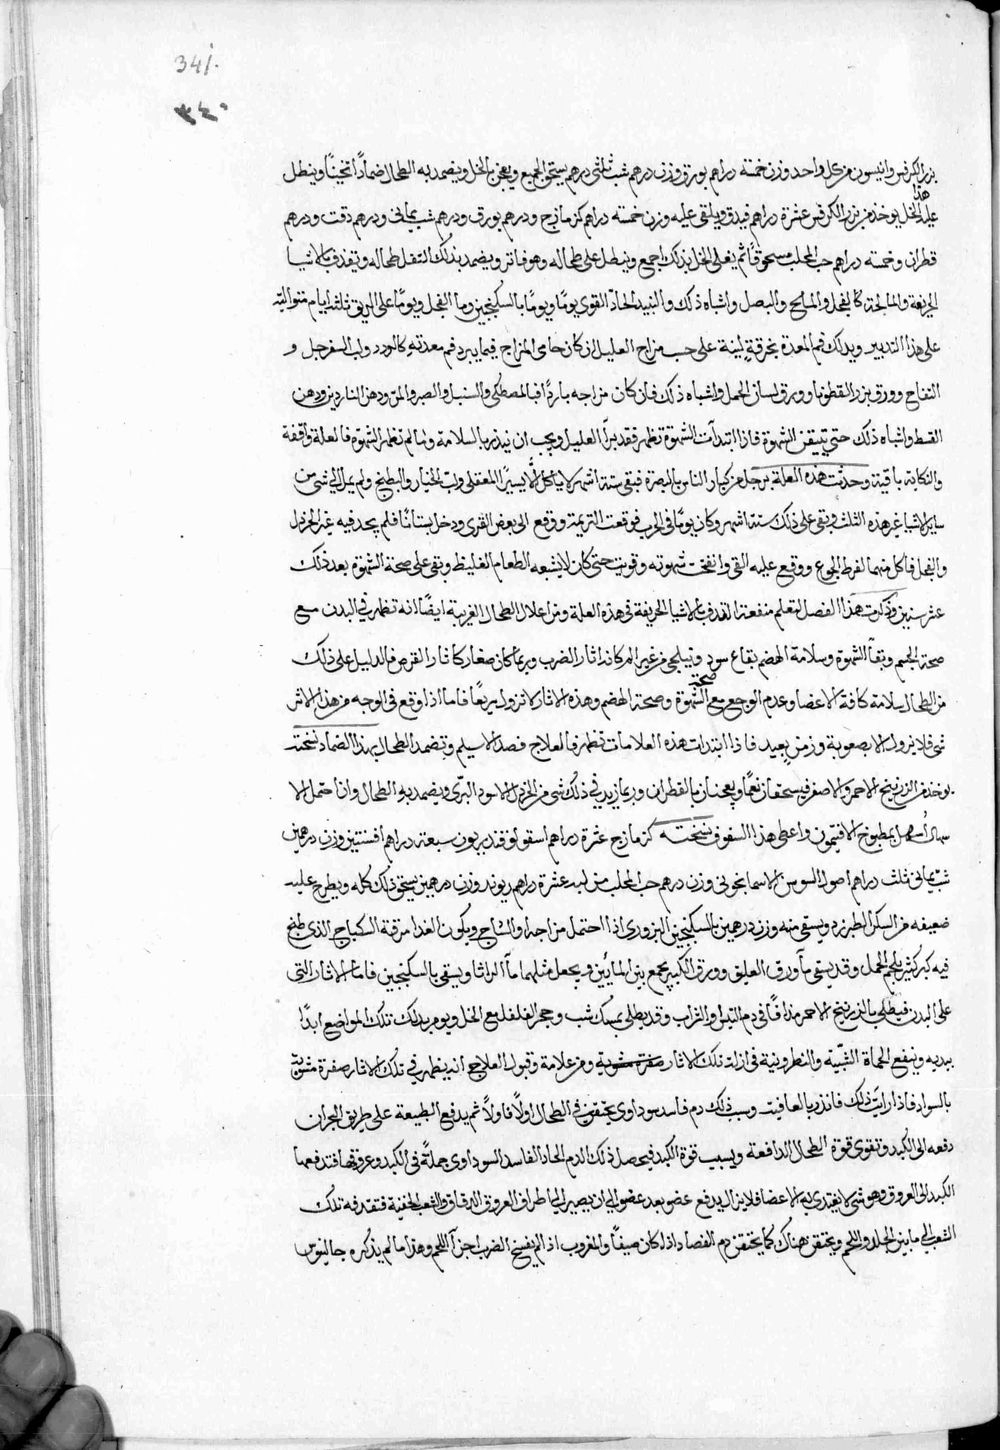 341.
٣٤٠
بزر الكرفس وانيسون من كل واحد وزن خمسة دراهم بورق وزن درهم شب ثلثى درهم يسحق الجميع ويعجن بالخل ويضمد به الطحال ضمادًا ثخينًا وينطل
عليه هذا الخل يوخذ من بزر الكرفس عشرة دراهم فيدق ويلقى عليه وزن خمسه دراهم كزمازج ودرهم بورق ودرهم شب يمانى ودرهم زفت ودرهم
قطران وخمسه دراهم حب المحلب مسحوقًا ثم يغلى الخل بذلك اجمع وينطل على طحاله وهو فاتر ويضمد بذلك الثفل طحاله ويقذف بالاشيا
الحريفة والمالحة كالفجل والمالح والبصل واشباه ذلك والنبيذ الحاد القوى يومًا ويومًا بالسكنجبين وما الفجل ويومًا على الريق ثلثه ايام متواليه
على هذا التدبير ويدلك فم المعدة بخرقة لينة على حسب مزاج العليل ان كان حامى المزاج فبما يبرد فم معدته كالورد ولب السفرجل و
التفاح وورق بزر القطونا وورق لسان الحمل واشباه ذلك فان كان مزاجه باردًا فبالمصطكى والسنبل والصبر والمر ودهن الناردين ودهن
القسط واشباه ذلك حتى تتيقن الشهوة فاذا ابتدأت الشهوة تظهر فقد برأ العليل ويجب ان ينذر بالسلامة وما لم تظهر الشهوة فالعلة واقفة
والنكاية باقية وحدثت هذه العلة برجل من كبار الناس بالبصرة فبقى ستة اشهر لا ياكل الا يسيرًا المعقلى ولب الخيار والبطيخ ولم يمل الى شى من
ساير الاشيا غير هذه الثلث وبقى على ذلك ستة اشهر وكان يومًا فى الحرب فوقعت الهزيمة ووقع الى بعض القرى ودخل بستانًا فلم يجد فيه غير الخردل
والفجل فاكل منهما لفرط الجوع ووقع عليه القى وانفتحت شهوته وقويت حتى كان لا يشبعه الطعام الغليظ وبقى على صحة الشهوة بعد ذلك
عشر سنين وذكرت هذا الفصل لتعلم منفعة القذف بالاشيا الحريفة فى هذه العلة ومن اعلال الطحال الغريبة ايضًا انه تظهر فى البدن مع
صحة الجسم وبقأ الشهوة وسلامة الهضم بقاع سود من غير الم كانه اثار الضرب وربما كان صغار كاثار القرص فالدليل على ذلك
من الطحال سلامة كافة الاعضا وعدم الوجع مع صحة الشهوة وصحة الهضم وهذه الاثار لا تزول سريعًا فاما اذا وقع فى الوجه من هذا الاثر
شى فلا يزول الا بصعوبة وزمن بعيد فاذا ابتدات هذه العلامات تظهر فالعلاج فصد الاسيلم وتضمد الطحال بهذا الضماد نسخته
يوخذ من الزرنيخ الاحمر والاصفر فيسحقان نعمًا ويعجنان بالقطران وربما زيد فى ذلك شى من الخردل الاسود البرى ويضمد به الطحال وان احتمل الا
سهال أسهل بمطبوخ الافتيمون واعطى هذا السفوف نسخته كزمازج عشرة دراهم اسقولوقندريون سبعة دراهم افسنتين وزن درهمين
شب يمانى ثلث دراهم اصول السوس الاسمانجونى وزن درهم حب المحلب من لبه عشرة دراهم ريوند وزن درهمين يسحق ذلك كله ويطرح عليه
ضعيفه من السكر الطبرزد ويسقى منه وزن درهمين بالسكنجبين البزورى اذا احتمل مزاجه والسالح ويكون الغذا مرقة السكباج الذى طبخ
فيه كبر كثير بلحم الحمل وقد يسقى مآ ورق العليق وورق الكبر يجمع بين المائين ويجعل مثلهما مآ الرازيانج ويسقى بالسكنجبين فاما الاثار التى
على البدن فيطلى بالزرنيخ الاحمر مدافًا فى دم التيس او الشراب وقد يطلى بسك شب وحجر الفلفل مع الخل ويومر بدلك تلك المواضع ابدًا
بيديه وينفع الحماة الشبية والنطرونية فى ازالة تلك الاثار ومن علامة وقبول العلاج انه يظهر فى تلك الاثار صفرة مشوبة
بالسواد فاذا رايت ذلك فانذر بالعافية وسبب ذلك دم فاسد سوداوى يحتقن فى الطحال اولًا فاولًا ثم يدفع الطبيعة على طريق البحران
دفعه الى الكبد وتقوى قوة الطحال الدافعة وبسبب قوة الكبد فيحصل ذلك الدم الحاد الفاسد السوداوى جملةً فى الكبد وعروقها فتدفعها
الكبد الى العروق وهو شى لا يغتدى به الاعضا فلا يزال يدفع عضو بعد عضو الى ان يصير الى اطراف العروق الدقاق والشعب الخفية فتقذفه تلك
الشعب الى ما بين الجلد واللحم ويحتقن هناك كما يحتقن دم الفصاد اذا كان ضيقًا والمضروب اذا لم يفسخ الضرب اجزآ اللحم وهذا ما لم يذكره جالينوس